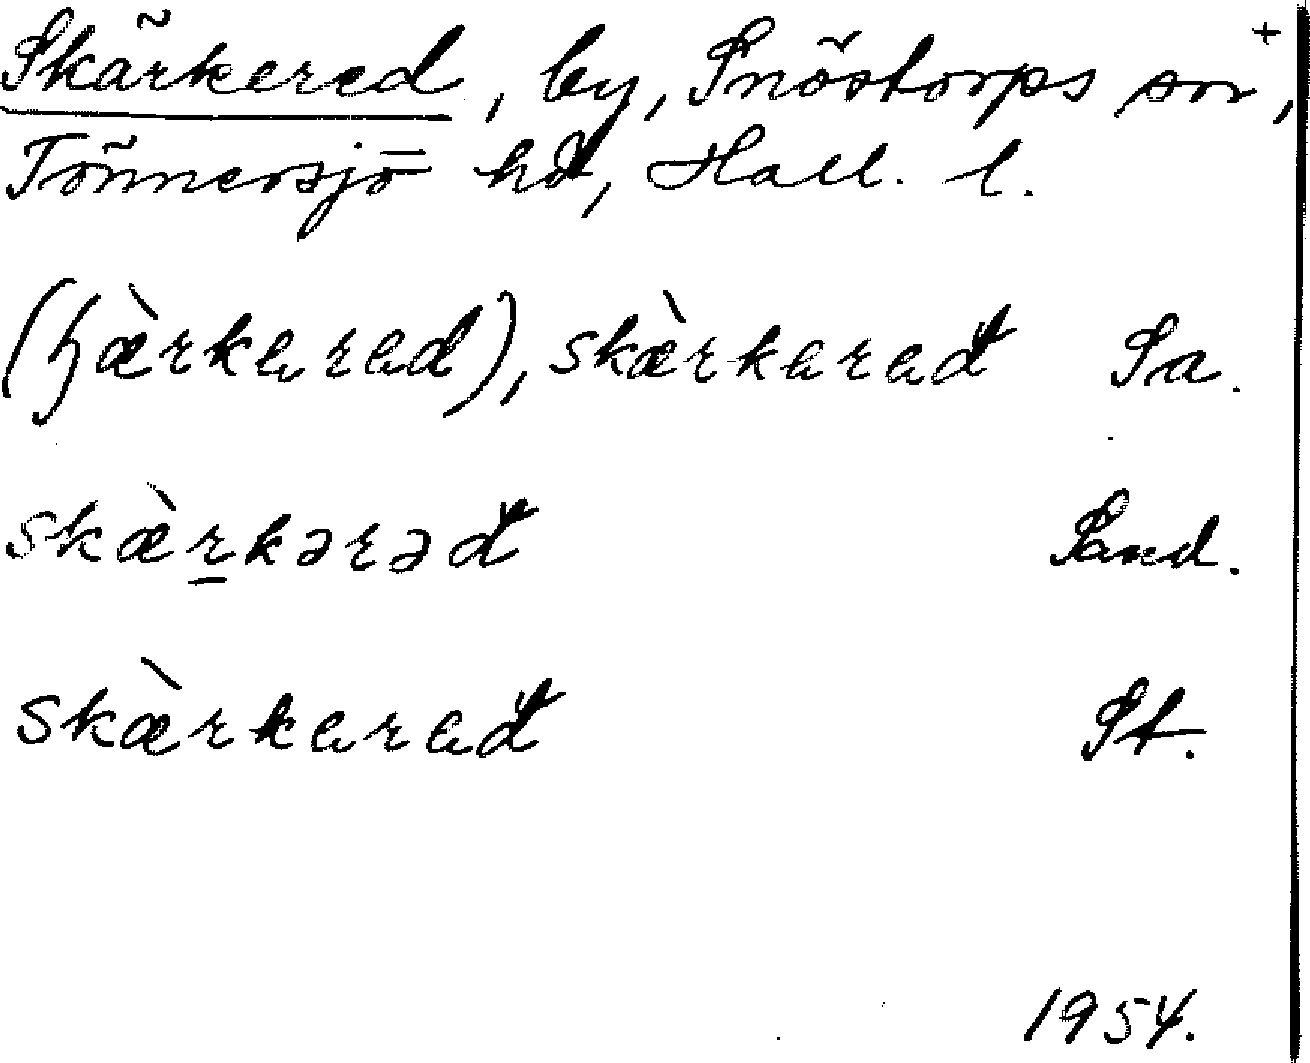 Skärkered, by, Snöstorps sn, +
Tönnersjö hd, Hall. l.
(ɧæ̀rkered), skæ̀rkered Sa.
skæ̀rkərəd Sand.
skæ̀rkered St.
1954.